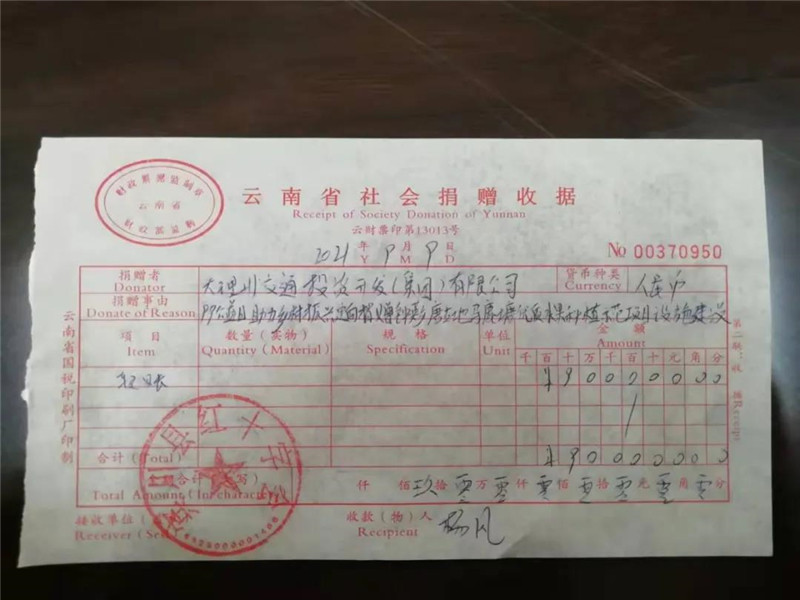 财政票据监制章
云南省
财政部监制
云南省社会捐赠收据
Receipt of Society Donation of Yunnan
云财票印第13013号
2021年9月9日
Y M D
No 00370950
捐赠者
Donator
大理州交通投资开发(集团)有限公司
货币种类
Currency
人民币
捐赠事由
Donate of Reason
99公益日助力乡村振兴定向捐赠
项目
Item
数量(实物)
Quantity (Material)
规格
Specification
单位
Unit
金额
Amount
千百十万千百十元角分
转账
¥90000000
合计(Total)
¥90000000
金额合计(大写)
Total Amount (In character)
仟佰玖拾零万零仟零佰零拾零元零角零分
接收单位(
Receiver (Seal
收款(物)人
Recipient
杨凡
县红十字会
云南省国税印刷厂印制
第二联:收据 Receipt